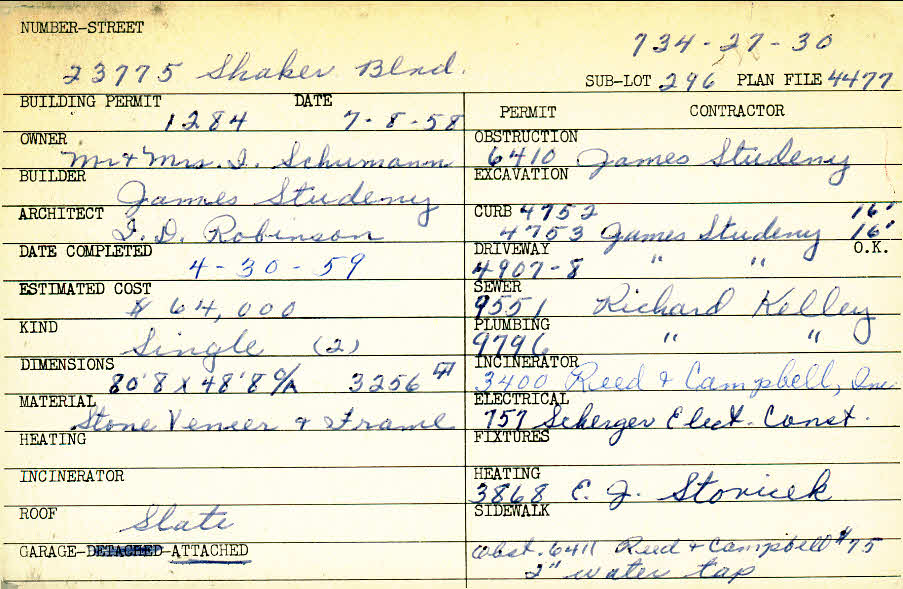 NUMBER-STREET
734-27-30
23775 Shaker Blvd.
SUB-LOT 296 PLAN FILE 4477
BUILDING PERMIT DATE
1284 7-8-58
OWNER
Mr & Mrs. I. Schumann
BUILDER
James Studeny
ARCHITECT
I. D. Robinson
DATE COMPLETED
4-30-59
ESTIMATED COST
$ 64,000
KIND
Single (2)
DIMENSIONS
80'8 x 48'8 O/A 3256
MATERIAL
Stone Veneer & Frame
HEATING
INCINERATOR
ROOF
Slate
GARAGE-DETACHED-ATTACHED
PERMIT CONTRACTOR
OBSTRUCTION
6410 James Studeny
EXCAVATION
CURB 4752 16'
4753 James Studeny 16'
DRIVEWAY O.K.
4907-8 " "
SEWER
9551 Richard Kelley
PLUMBING
9796 " "
INCINERATOR
3400 Reed & Campbell, Inc.
ELECTRICAL
757 Scherger Elect. Const.
FIXTURES
HEATING
3868 E. J. Stovicek
SIDEWALK
Obst. 6411 Reed & Campbell $75
2" water tap